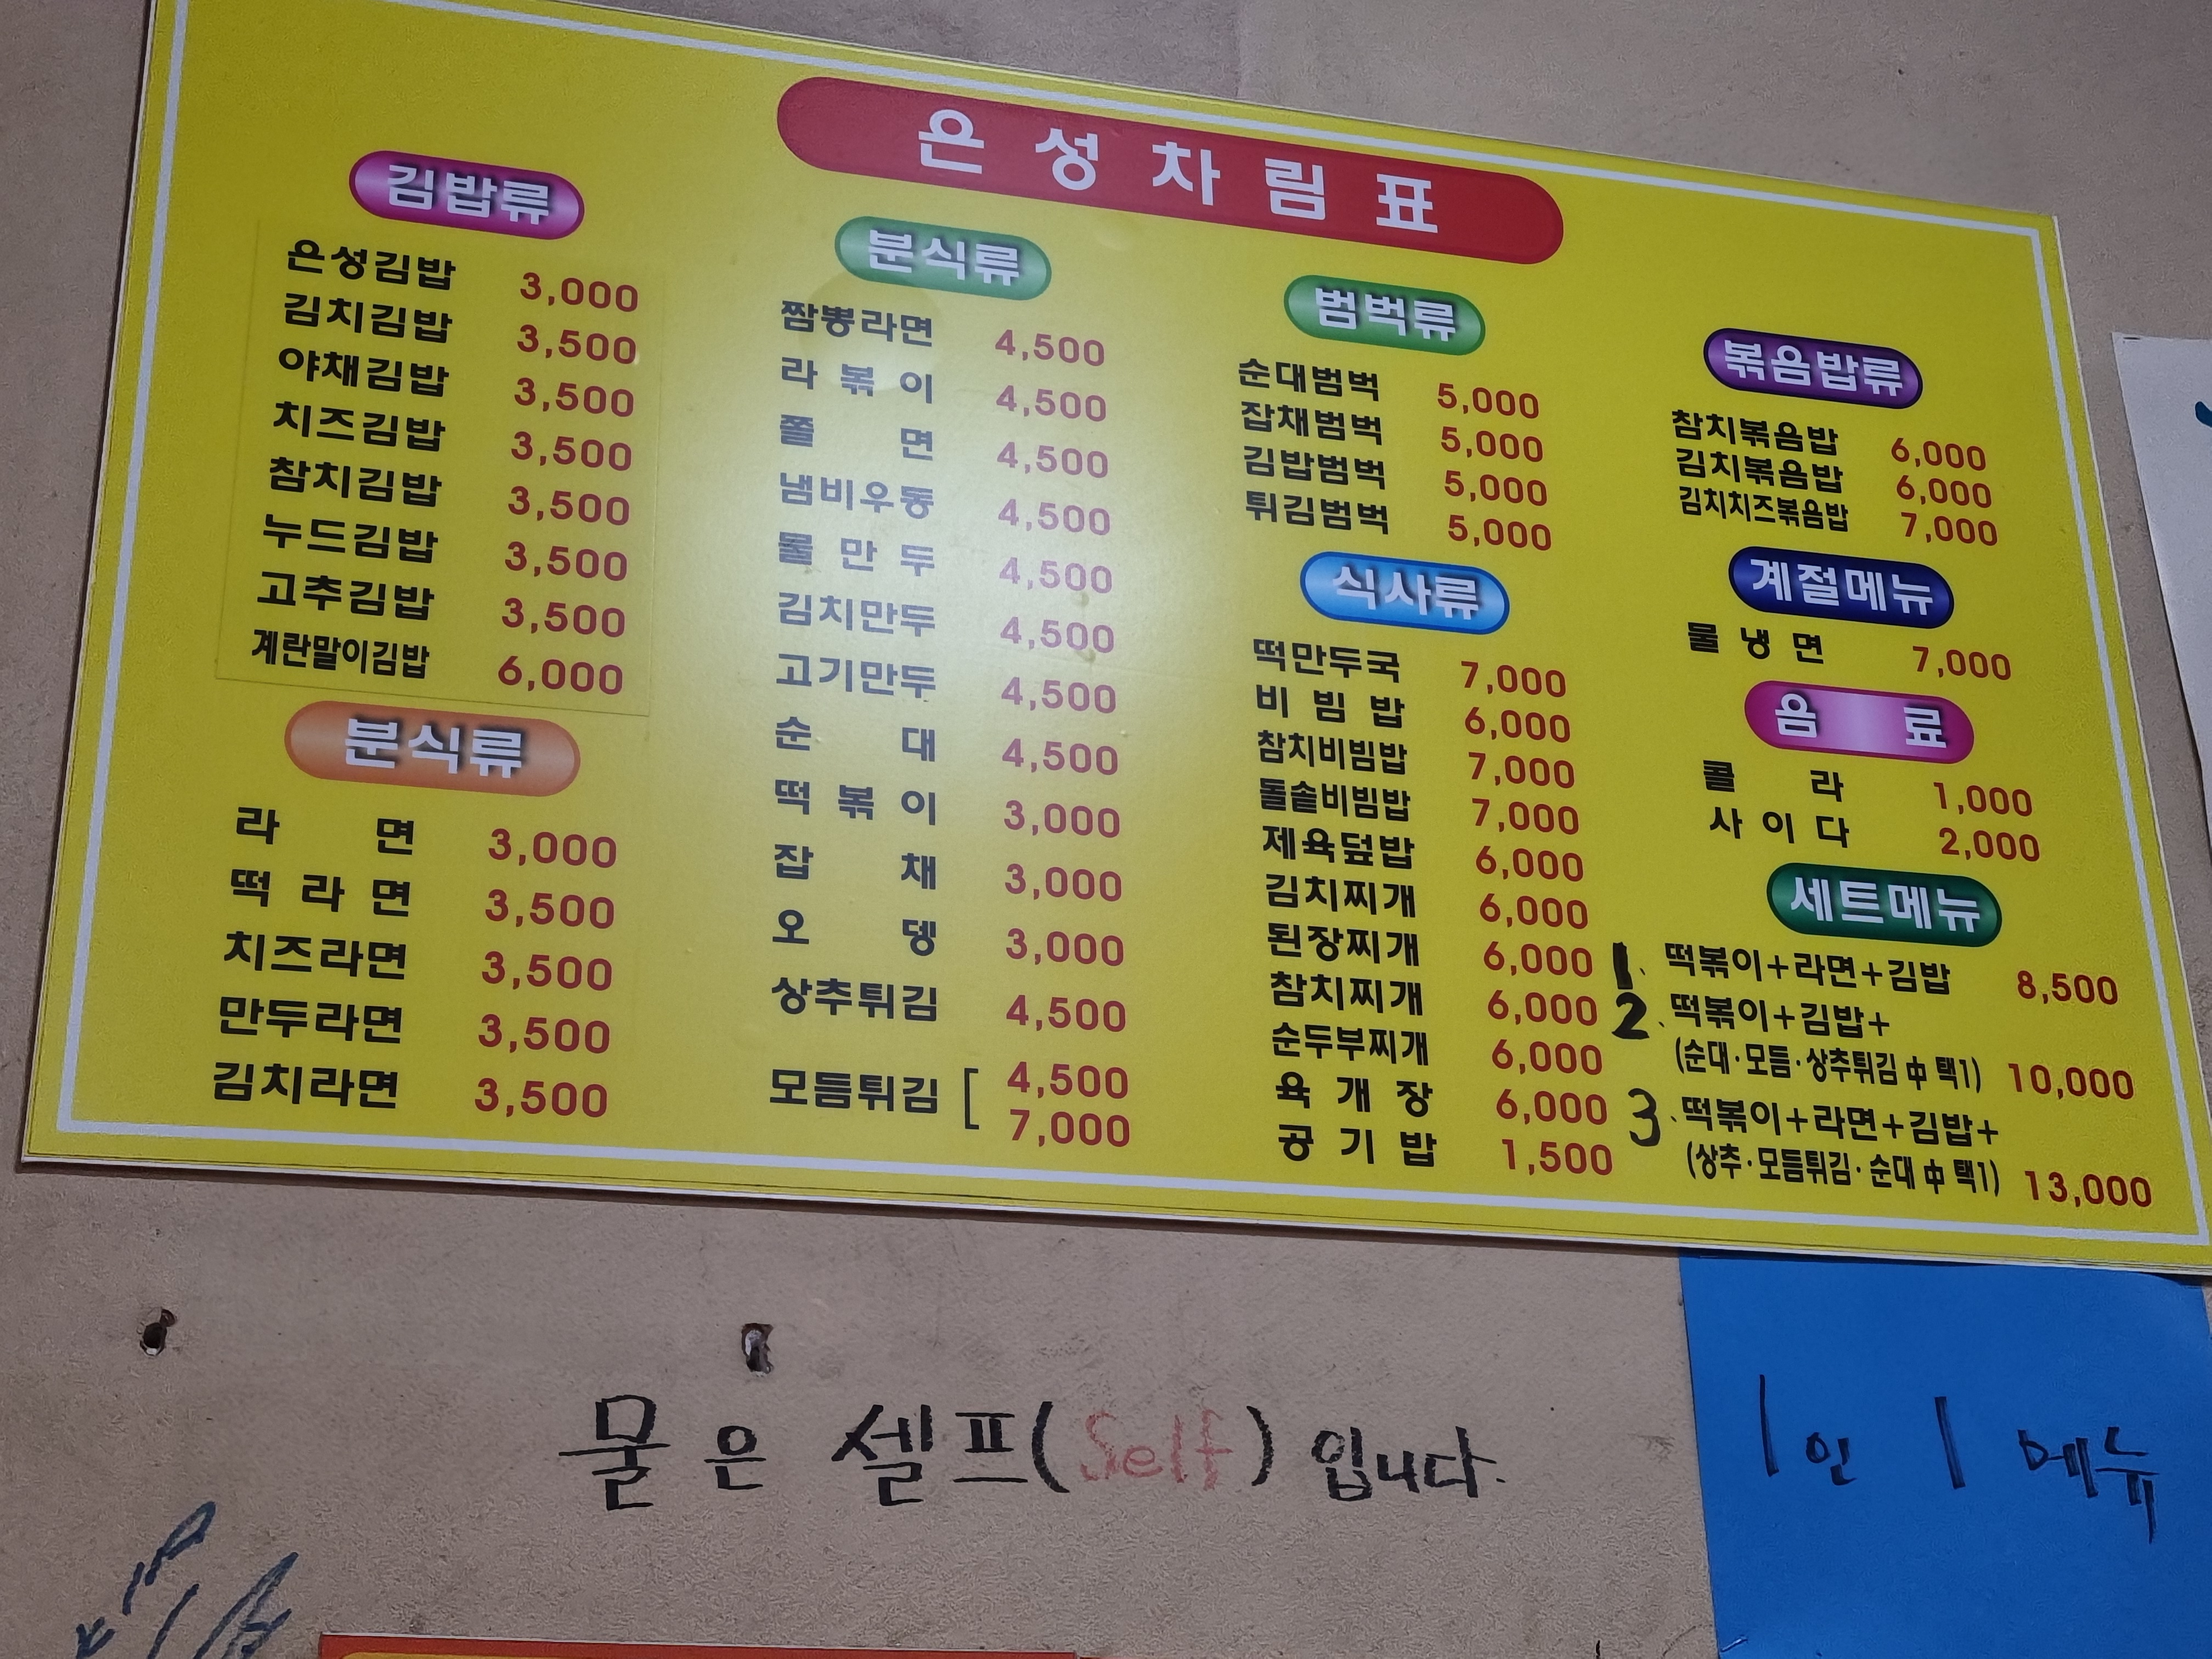 은성차림표
김밥류
은성김밥 3,000
김치김밥 3,500
야채김밥 3,500
치즈김밥 3,500
참치김밥 3,500
누드김밥 3,500
고추김밥 3,500
계란말이김밥 6,000
분식류
라면 3,000
떡라면 3,500
치즈라면 3,500
만두라면 3,500
김치라면 3,500
분식류
짬뽕라면 4,500
라볶이 4,500
쫄면 4,500
냄비우동 4,500
물만두 4,500
김치만두 4,500
고기만두 4,500
순대 4,500
떡볶이 3,000
잡채 3,000
오뎅 3,000
상추튀김 4,500
모듬튀김 [ 4,500
7,000
범벅류
순대범벅 5,000
잡채범벅 5,000
김밥범벅 5,000
튀김범벅 5,000
식사류
떡만두국 7,000
비빔밥 6,000
참치비빔밥 7,000
돌솥비빔밥 7,000
제육덮밥 6,000
김치찌개 6,000
된장찌개 6,000
참치찌개 6,000
순두부찌개 6,000
육개장 6,000
공기밥 1,500
볶음밥류
참치볶음밥 6,000
김치볶음밥 6,000
김치치즈볶음밥 7,000
계절메뉴
물냉면 7,000
음료
콜라 1,000
사이다 2,000
세트메뉴
1. 떡볶이+라면+김밥 8,500
2. 떡볶이+김밥+
(순대·모듬·상추튀김 中 택1) 10,000
3. 떡볶이+라면+김밥+
(상추·모듬튀김·순대 中 택1) 13,000
물은 셀프(Self)입니다.
1인 1 메뉴